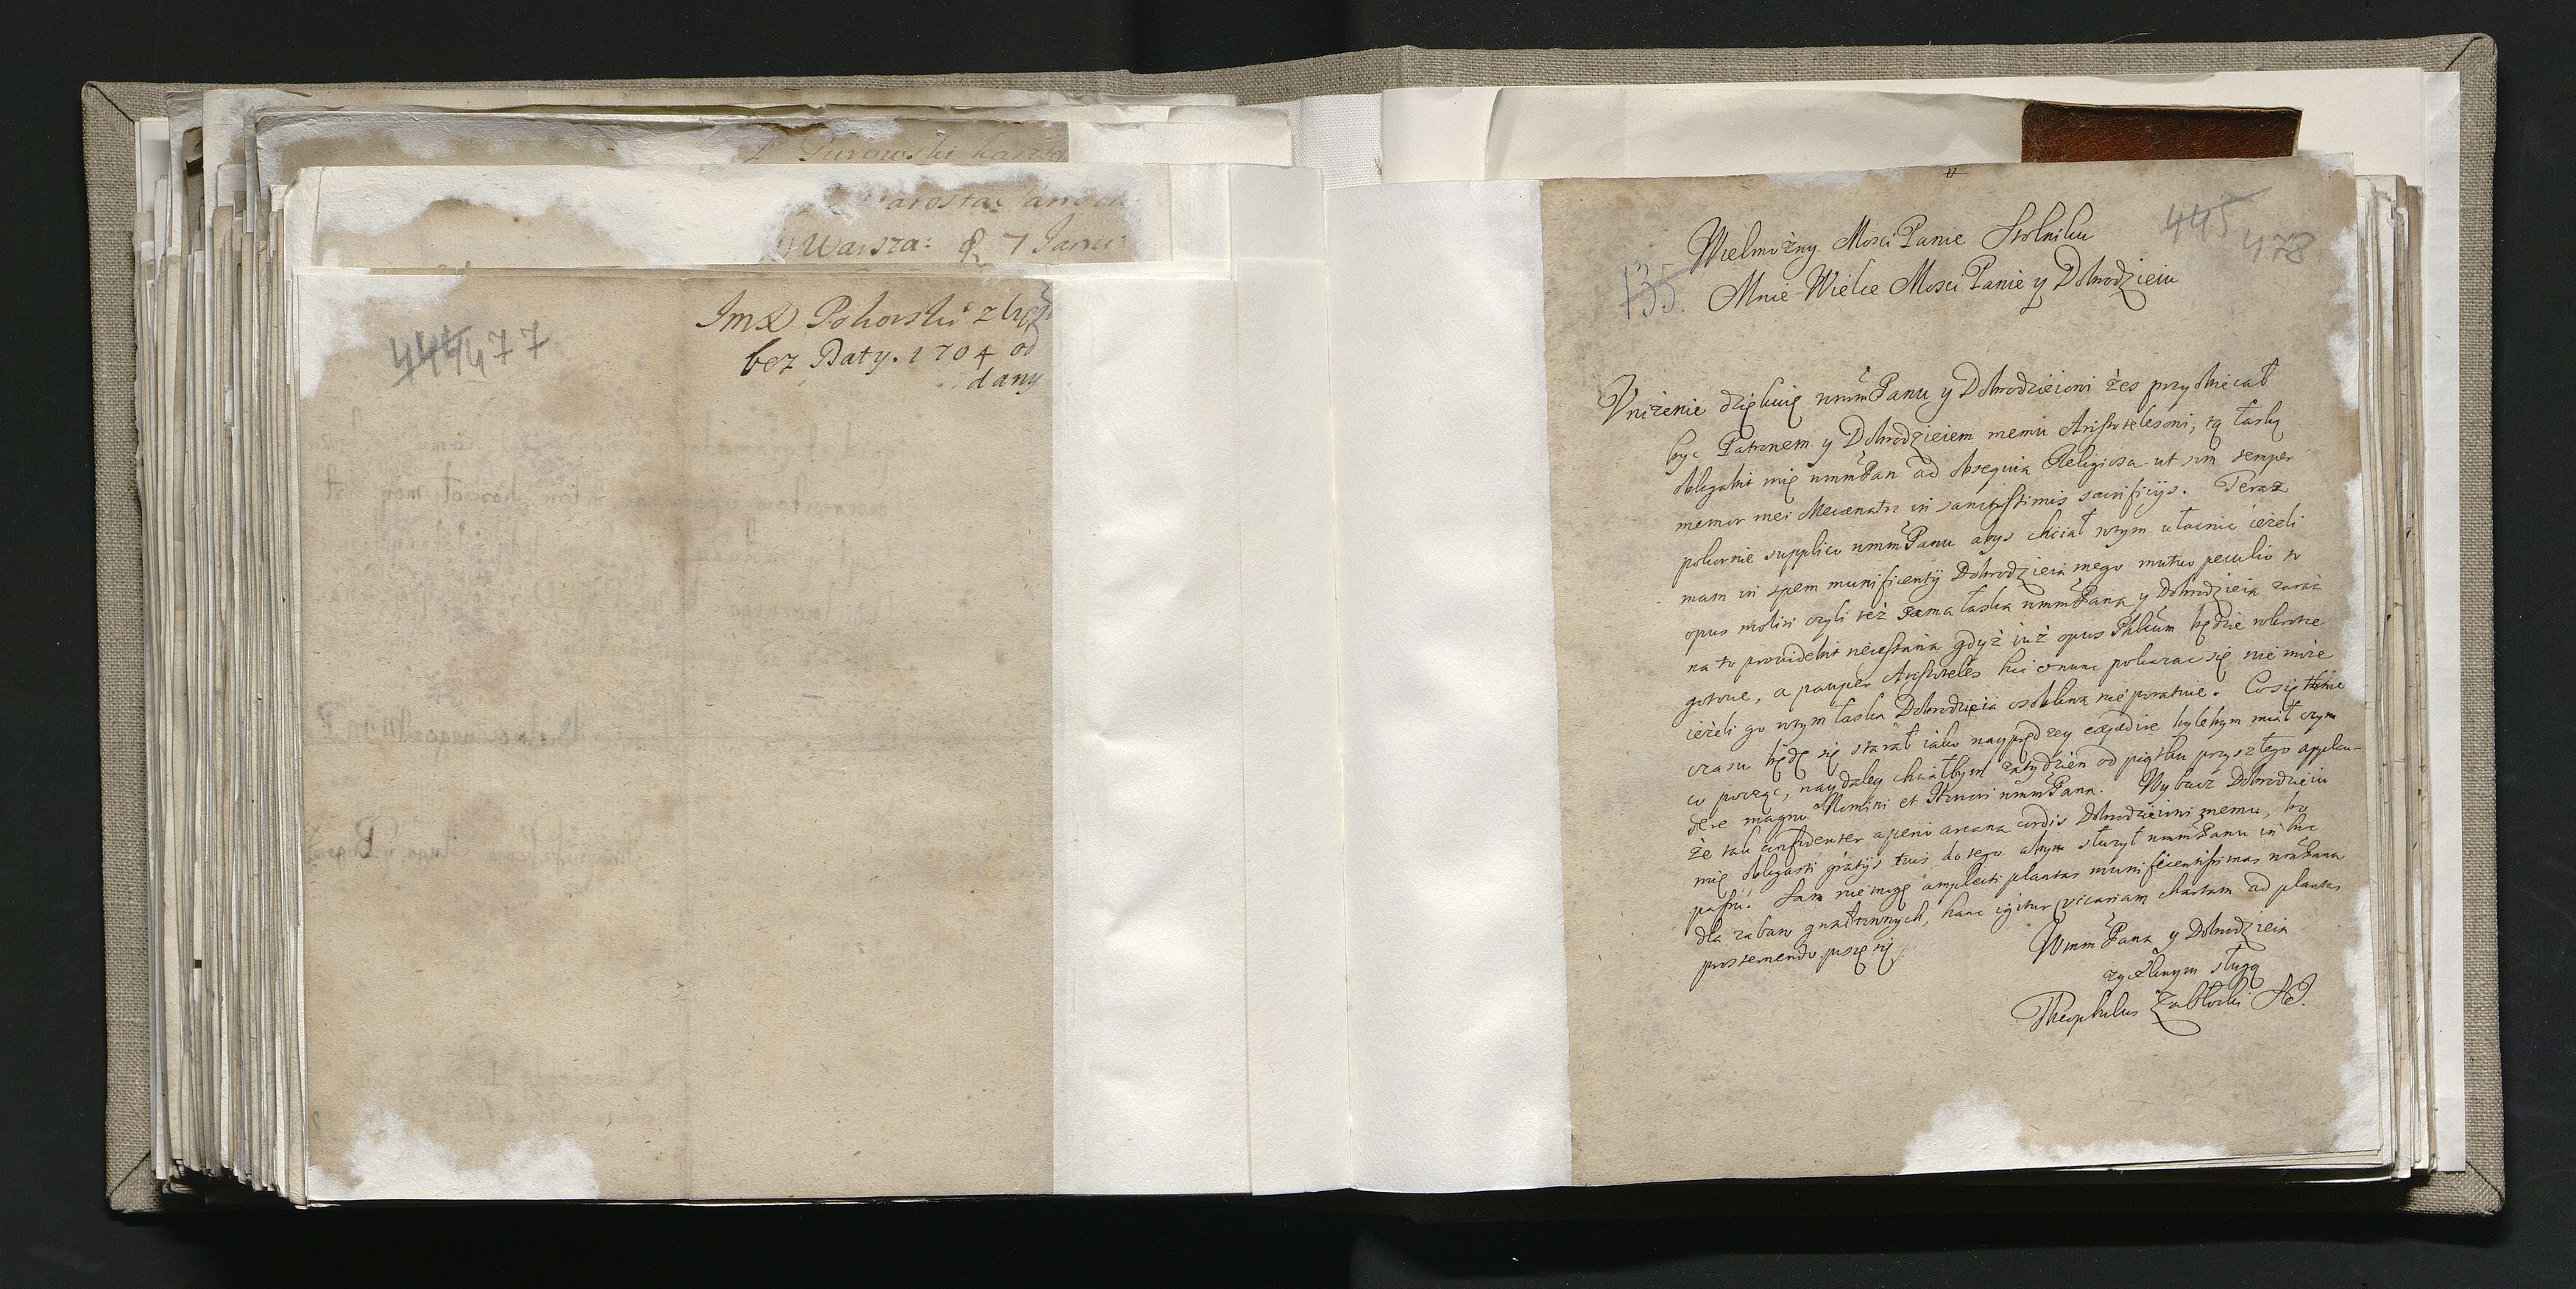 Purowski
arosta
Warsza: 7 Janu:
444 477
Imx Pokorski z
bez Daty. 1704 od
dany
445 478
135.
Wielmożny Mosci Panie Stolniku
Mnie Wielce Mosci Panie y Dobrodzieiu
Vniżenie dziękuię wmmPanu y Dobrodzieiowi żes przyobiecał
byc Patronem y Dobrodzieiem memu Aristotelesowi, tą łaską
obligabit mię wmmPan ad obsequia Religiosa ut sim semper
memor mei Mecenatis in sanctissimis sacrificijs. Teraz
pokornie supplico wmmPanu abys chciał wtym ułacnic ieżeli
mam in spem munificentij Dobrodzieia mego mutuo peculio to
opus moliri czyli też sama łaska wmmPana y Dobrodzieia zaraz
na to providebit necessaria gdyż iuż opus Phlicum będzie wkrotce
gotowe, a pauper Aristoteles hic et nunc pokazac się nie może
ieżeli go wtym łaska Dobrodzieia osobliwa nie poratuie. Co się
czasu będę się starał iako nayprędzey expedire bylebym miał czym
co począc, naydaley chciałbym zatydzień od piątku przyszłego applau-
dere magno Nomini et Honori wmmPana. Wybacz Dobrodzieiu
że tak confidenter aperio arcana cordis Dobrodzieiowi memu, bo
mię obligasti gratijs tuis do tego abym służył wmmPanu in hoc
passu. Sam nie mogę amplecti plantas munificentissimas wmPana
dla zabaw gwałtownych, hanc igitur vicariam chartam ad plantas
prosternendo piszę się
WmmPana y Dobrodzieia
życzliwym sługą
Theophilus Zabłocki SJ.